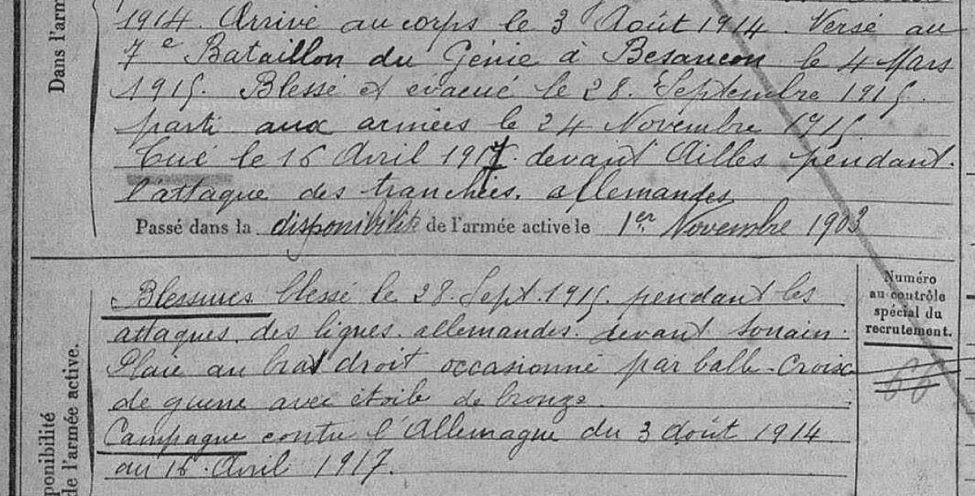 Dans l'arm
1914. Arrivé au corps le 3 Août 1914. Versé au
7e Bataillon du Génie à Besançon le 4 Mars
1915. Blessé et évacué le 28 Septembre 1915.
parti aux armées le 24 Novembre 1915.
Tué le 16 Avril 1917 devant Ailles pendant
l'attaque des tranchées allemandes
Passé dans la disponibilité de l'armée active le 1er Novembre 1903
ponibilité
de l'armée active.
Blessures blessé le 28 Sept. 1915. pendant les
attaques des lignes allemandes devant Souain.
Plaie au bras droit occasionné par balle - Croix
de guerre avec étoile de bronze.
Campagne contre l'Allemagne du 3 Août 1914
au 16 Avril 1917.
Numéro
au contrôle
spécial du
recrutement.
66